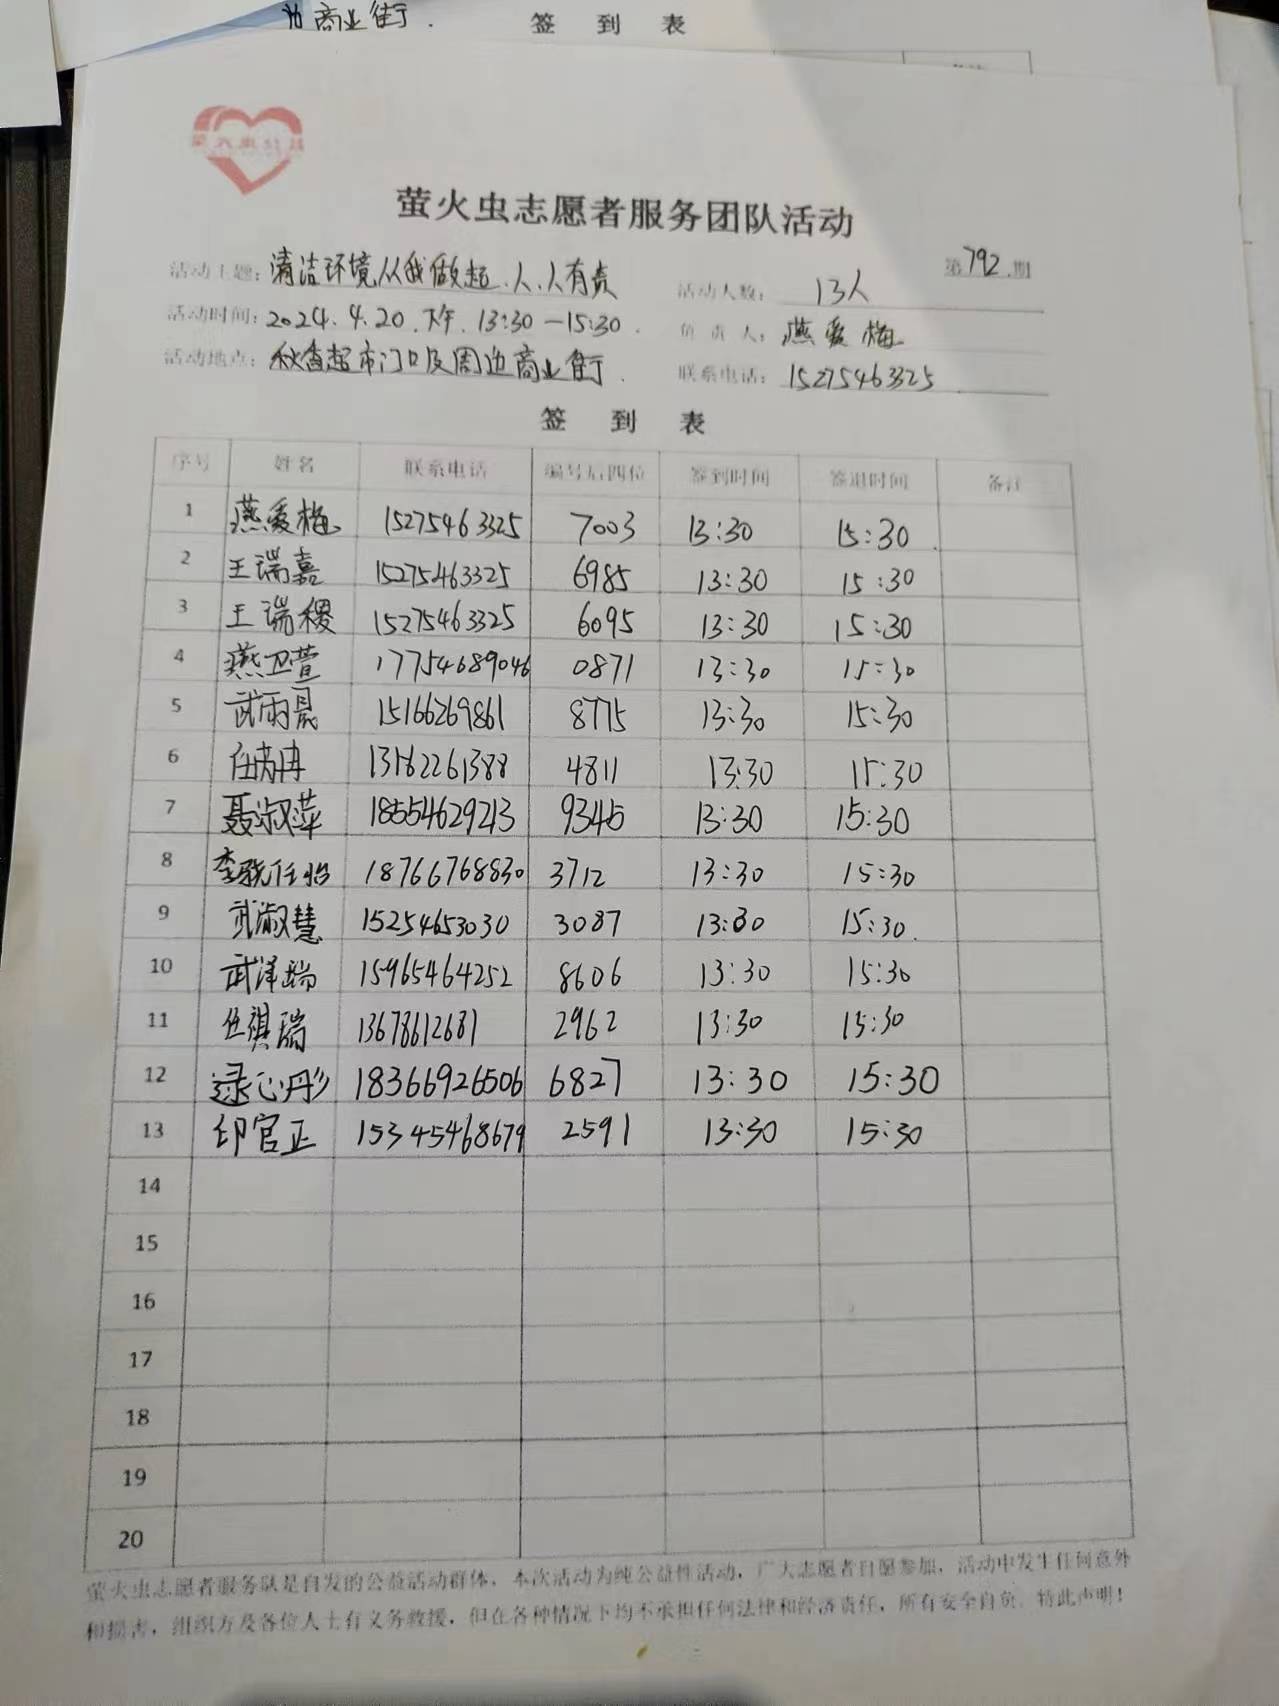 商业街.
签 到 表
萤火虫志愿者服务团队活动
第792.期
活动主题: 清洁环境从我做起.人.人有责 活动人数: 13人
活动时间: 2024.4.20.下午.13:30-15:30. 负责人: 燕爱梅
活动地点: 秋香超市门口及周边商业街. 联系电话: 15275463325
签 到 表
序号 姓名 联系电话 编号后四位 签到时间 签退时间 备注
1 燕爱梅 15275463325 7003 13:30 15:30
2 王瑞嘉 15275463325 6985 13:30 15:30
3 王瑞稷 15275463325 6095 13:30 15:30
4 燕卫萱 17754689046 0871 13:30 15:30
5 武雨晨 15166269861 8775 13:30 15:30
6 任芮冉 13182261388 4811 13:30 15:30
7 聂淑萍 18554629213 9345 13:30 15:30
8 李 任怡 18766768830 3712 13:30 15:30
9 武淑慧 15254653030 3087 13:30 15:30.
10 武泽瑞 15965464252 8606 13:30 15:30
11 祺瑞 13678612681 2962 13:30 15:30
12 逯心彤 18366926506 6827 13:30 15:30
13 印官正 15345468679 2591 13:30 15:30
14
15
16
17
18
19
20
萤火虫志愿者服务队是自发的公益活动群体，本次活动为纯公益性活动，广大志愿者自愿参加，活动中发生任何意外
和损害，组织方及各位人士有义务救援，但在各种情况下均不承担任何法律和经济责任，所有安全自负，特此声明！